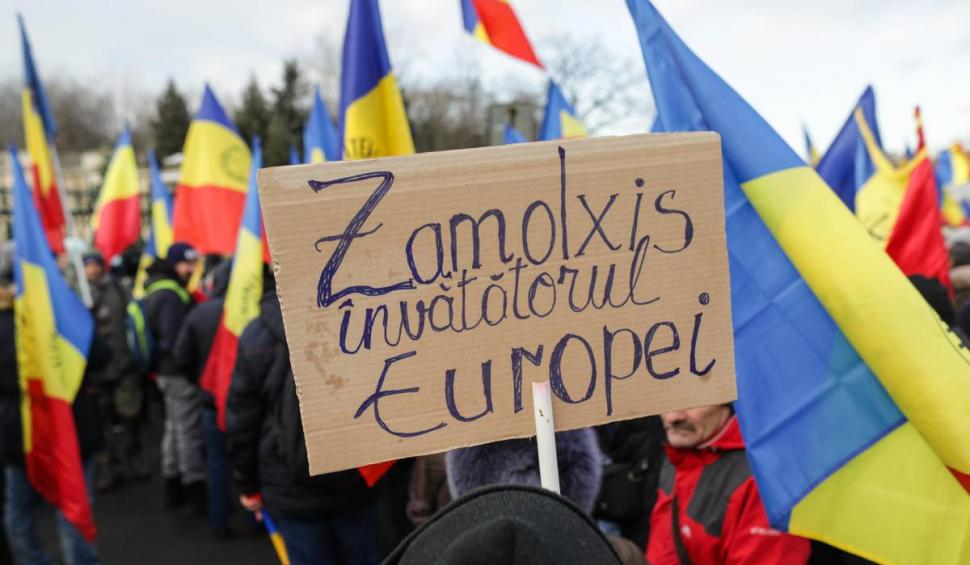 Zamolxis
învătătorul
Europei